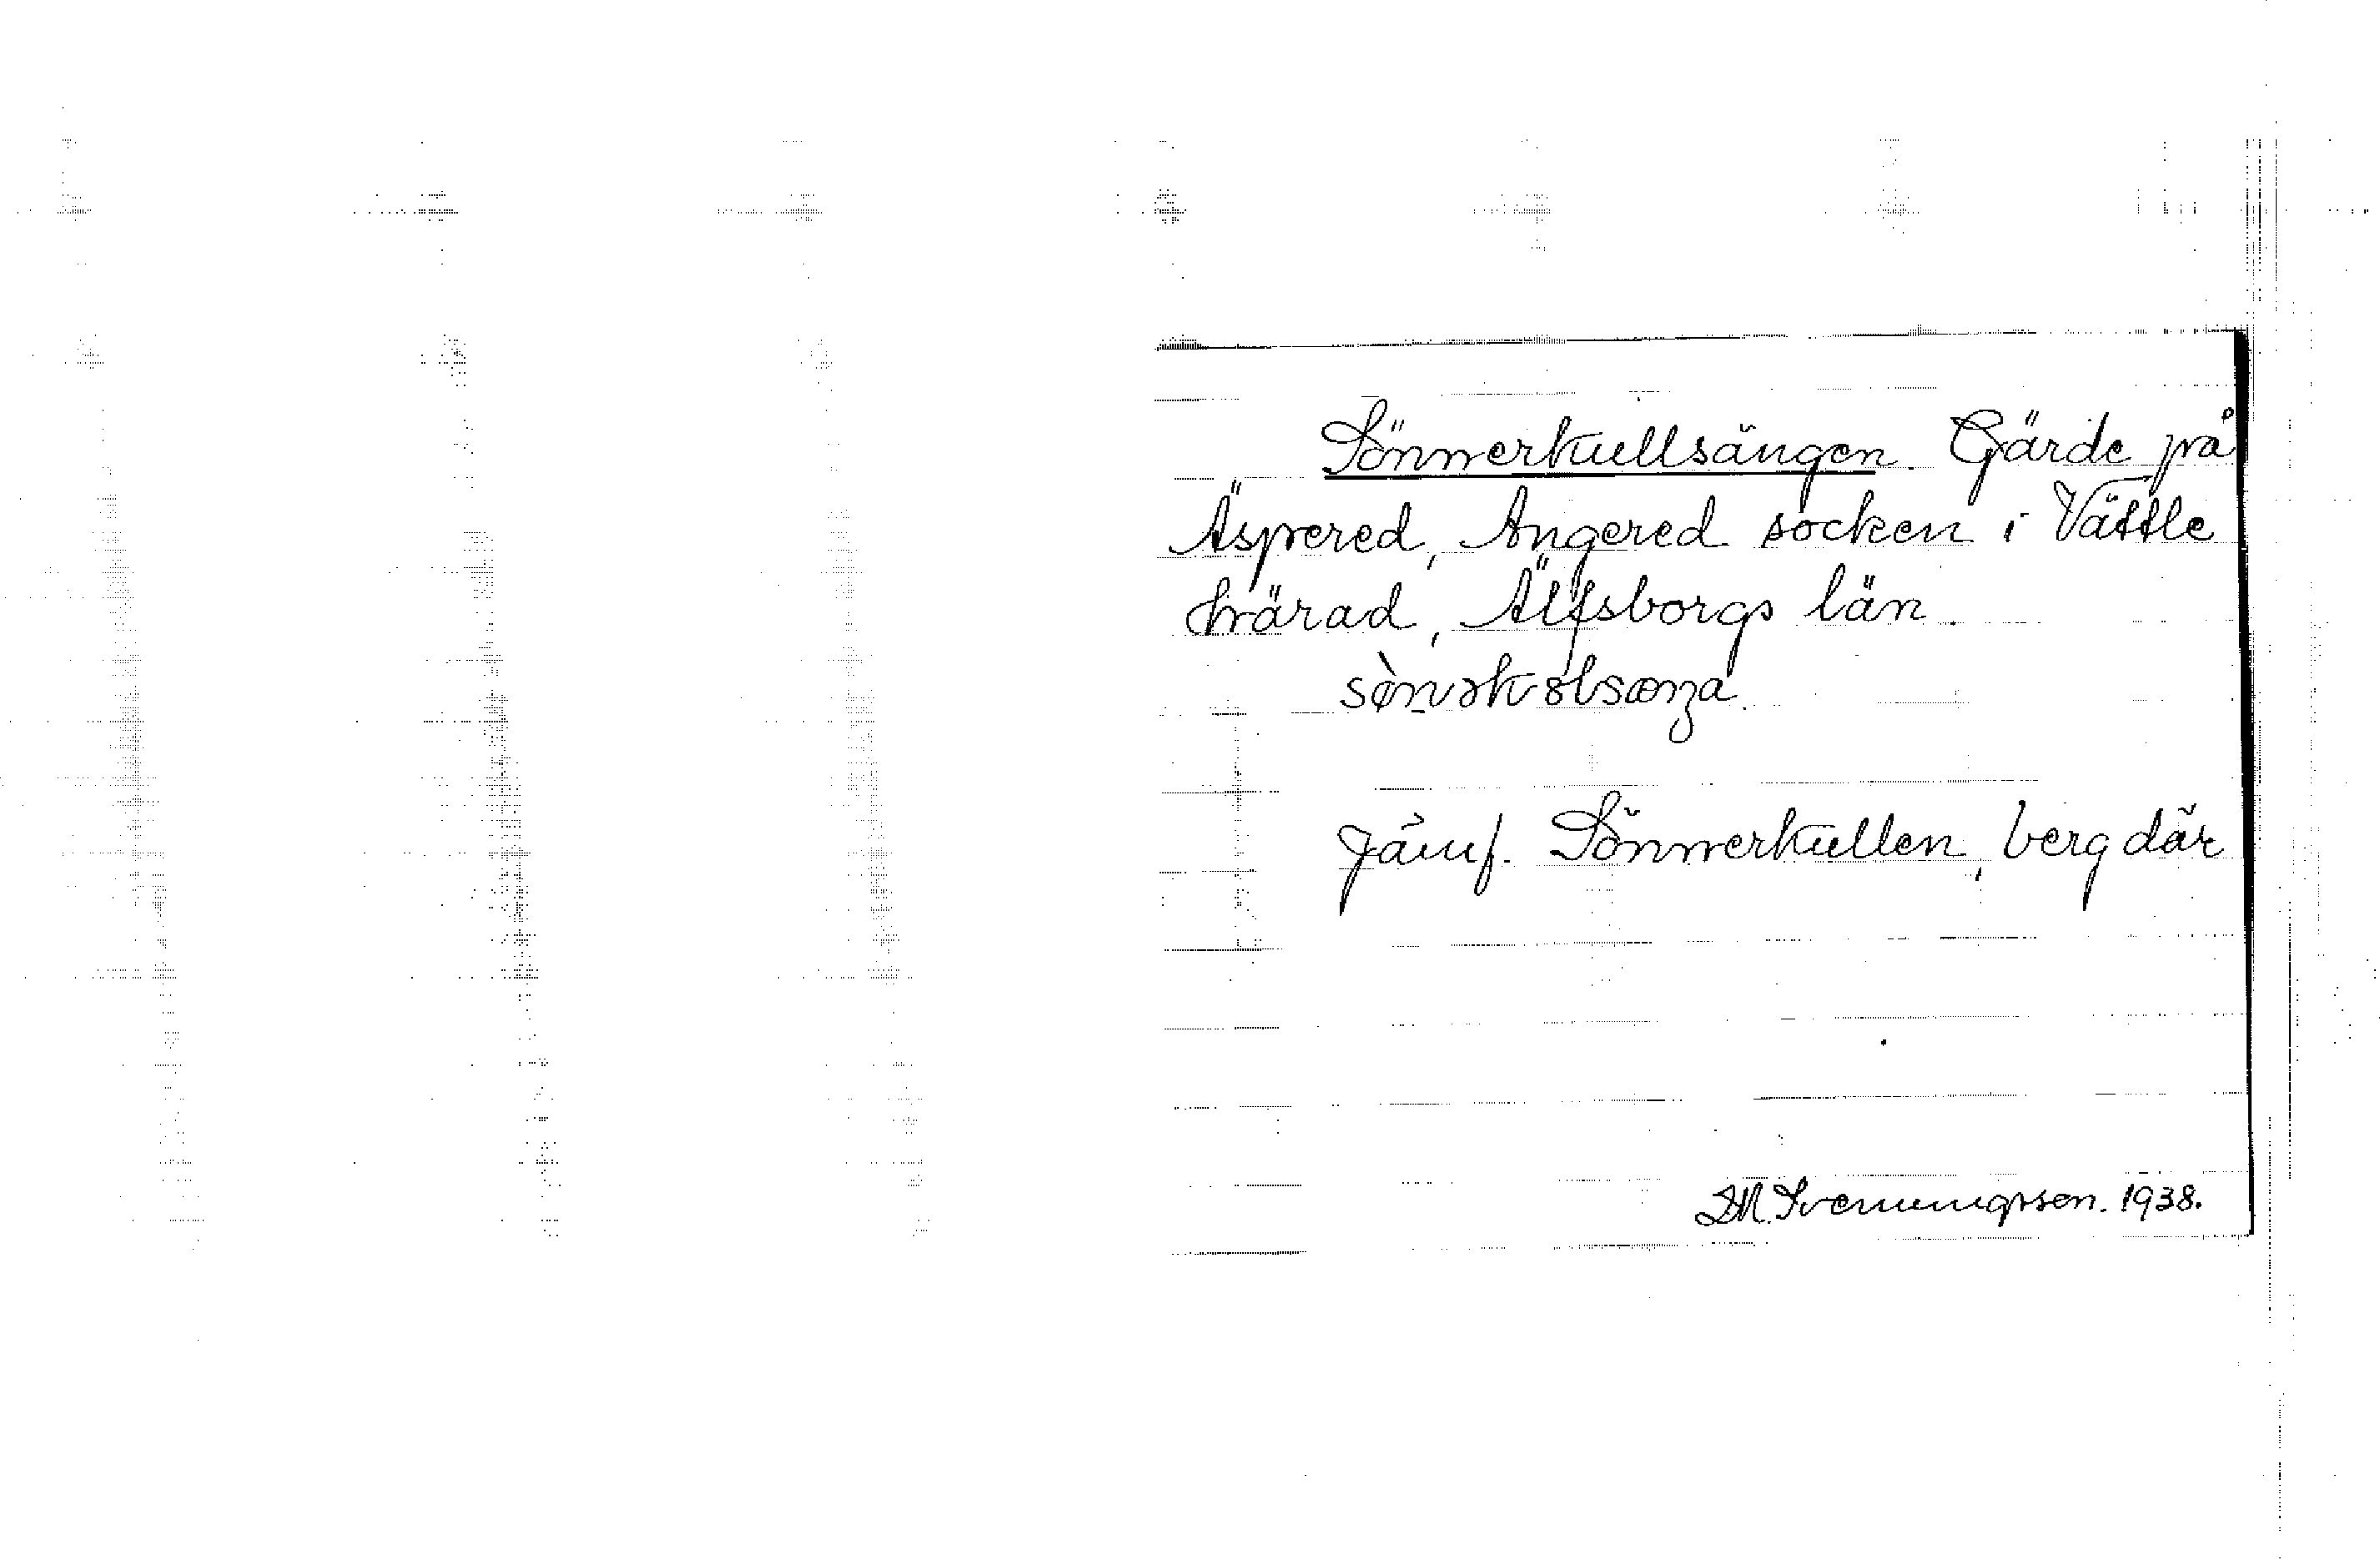 Sönnerkullsängen. Gärde på
Äspered, Angered socken i Vättle
härad, Älfsborgs län.
sø̀nərkɵlsæŋa.
Jämf. Sönnerkullen, berg där
D.M. Svenungsson. 1938.